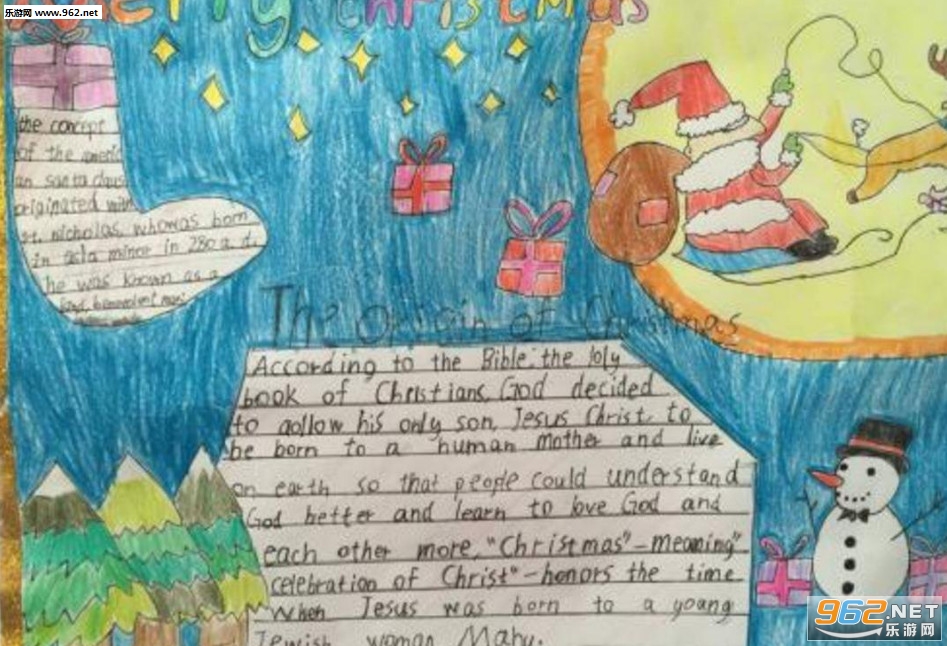 乐游网 www.962.net
Merry Christmas
the concept
of the americ
an santa claus
originated with
st. nicholas, whowas born
in asia minor in 280 a.d.
he was known as a
kind, benevolent man
The origin of Christmas
According to the Bible, the loly
book of Christians, God decided
to aollow his only son, Jesus Christ to
be born to a human mother and live
on earth so that people could understand
God better and learn to love God and
each other more, "Christmas"-meaning"
celebration of Christ"-honors the time
when Jesus was born to a young
Jewish woman Mahy.
962.NET
乐游网